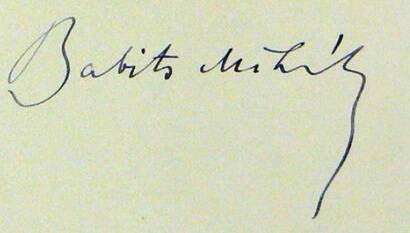 Babits Mihály